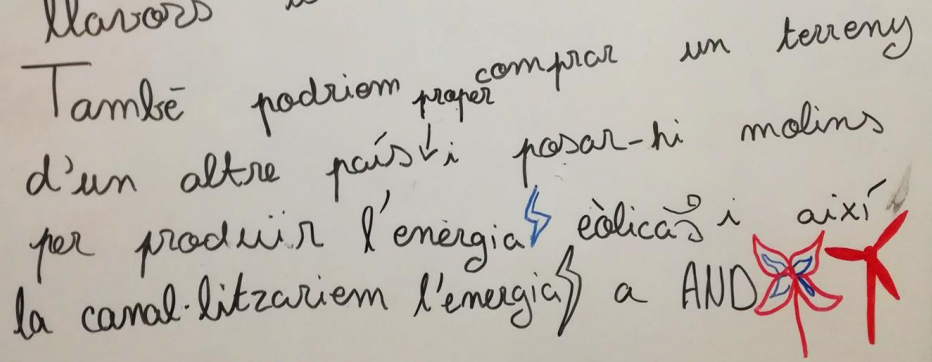 llavors
També podriem comprar un terreny
d'un altre país proper i posar-hi molins
per produïir l'enèrgia eòlica i així
la canal·litzariem l'energia a AND